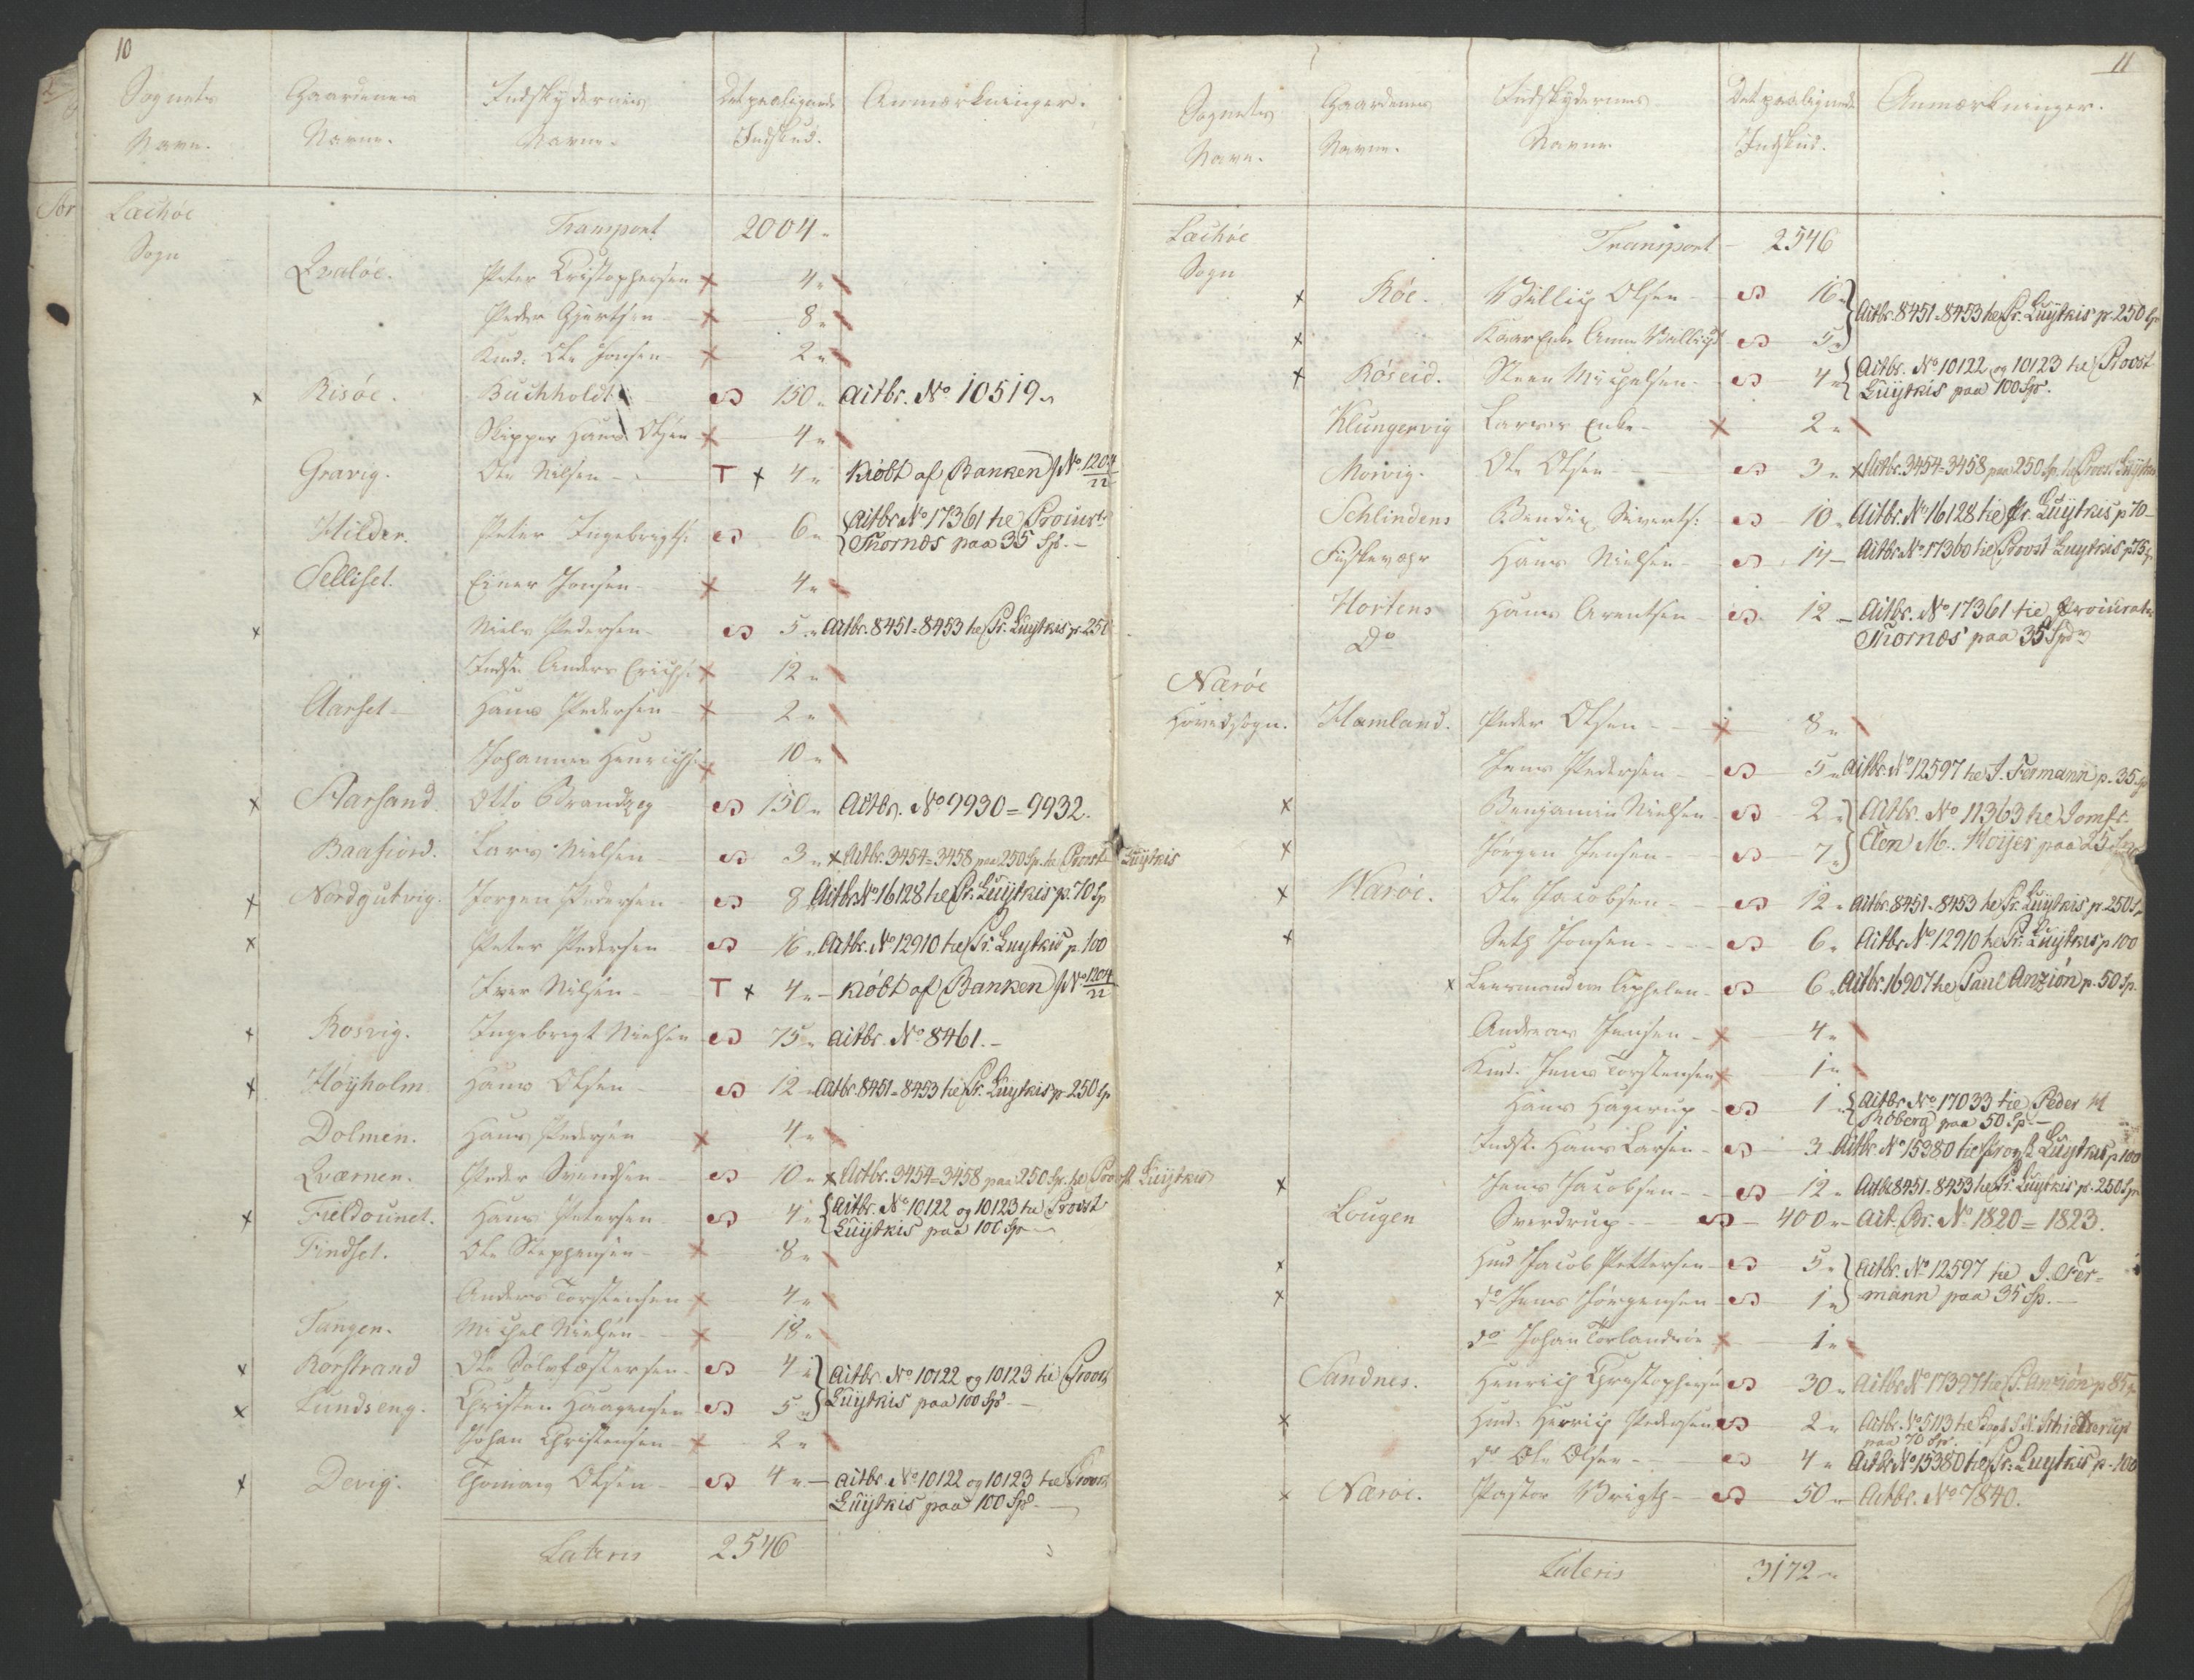 10
Sognets Navn. | Gaardenes Navne. | Indskydernes Navne. | Det paalignede Indskud. | Anmærkninger.
Læchøe Sogn
Transport 2004 „
Qvaløe. Peter Christophersen x 4 „
Peder Gjertsen x 8 „
Huusmd: Ole Jonsen x 2 „
x Risøe. Buchholdt S 150 „ Actbr. No 10519.
Skipper Hans Olsen x 4 „
Gravig. Ole Nilsen T x 4 „ Kiøbt af Banken No 1204/22
Hilder. Peter Ingebrigts: S 6 „ Actbr No 17361 til Procurt. Thornæs paa 35 Sp. –
Sellisel. Einer Jonsen x 4 „
x Niels Pedersen S 5 „ Actbr. 8451=8453 til Pr. Luytkis p. 250
Inds: Anders Erichs: x 12 „
Aarsel Hans Pedersen x 2 „
Johannes Henrichs: x 10 „
x Aarsand. Otto Brandzeg S 150 „ Actbr. No 9930=9932.
Baafiord. Lars Nielsen S 3 „ x Actbr. 3454=3458 paa 250 Sp. til Provst Luytkis
x Nordgutvig. Jørgen Pedersen S 8 Actbr No 16128 til Pr. Luytkis p. 70 Sp
x Peter Pedersen S 16 „ Actbr. No 12910 til Pr. Luytkis p. 100
Iver Nilsen T x 4 „ – Kiøbt af Banken No 1204/22
x Rosvig. Ingebrigt Nielsen S 75 „ Actbr. No 8461. –
x Høyholm Hans Olsen S 12 „ Actbr. 8451=8453 til Pr. Luytkis p. 250 Sp
Dolmen. Hans Pedersen x 4 „
Qværnen. Peder Svendsen S 10 „ x Actbr. 3454=3458 paa 250 Sp. til Provst Luytkis
x Fieldounet. Hans Petersen S 4 „ Actbr. No 10122 og 10123 til Provst Luytkis paa 100 Sp
Findsel. Ole Stephensen x 8 „
Anders Torstensen x 4 „
Tangen. Michel Nielsen x 18 „
x Rorstrand Ole Sølvfæstersen S 4 „ Actbr. No 10122 og 10123 til Provst
x Lundseng. Christen Haagensen S 5 „ Luytkis paa 100 Sp. –
Johan Christensen x 2 „
x Devig. Thomas Olsen S 4 „ – Actbr. No 10122 og 10123 til Provst Luytkis paa 100 Sp. –
Lateris 2546
11
Sognets Navn. | Gaardenes Navne. | Indskydernes Navne | Det paalignede Indskud. | Anmærkninger.
Læchøe Sogn
Transport – 2546
x Røe. Willich Olsen S 16 „ Actbr. 8451=8453 til Pr. Luytkis p. 250 Sp
x Enke Anne S 5 „
x Røseid. Steen Michelsen S 4 „ Actbr. No 10122 og 10123 til Provst Luytkis paa 100 Sp.
Klungervig Larses Enke x 2 „
Morvig. Ole Olsen S 3 „ x Actbr. 3454=3458 paa 250 Sp. til Provst Luytkis
Schlindens Bendix Siverts: S 10 „ Actbr. No 16128 til Pr. Luytkis p 70 –
Fiskevaer Hans Nielsen S 14 – Actbr No 17360 til Provst Luytkis p 75 Sp
Hortens Do Hans Arentsen S 12 – Actbr. No 17361 til Procurat. Thornæs paa 35 Spd
Nærøe Hovedsogn. Hamland. Peder Olsen x 8 „
Jens Pedersen S 5 „ Actbr. No 12597 til J. Fermann p. 35 Sp
x Benjamin Nielsen S 2 „ Actbr. No 11363 til Jomfr.
x Jørgen Jensen S 7 „ Elen M. Hoijer paa 25 Sp
x Warøe. Ole Jacobsen S 12 „ Actbr. 8451=8453 til Pr. Luytkis p. 250 Sp
x Seth Jonsen S 6 „ Actbr No 12910 til Pr. Luytkis p 100
x Leensmanden S 6 „ Actbr. 16907 til Paul Anzión p. 50 Sp.
Andreas Jensen x 4 „
Huusmd. Jens Torstensen x 1 „
Hans Hagerup S 1 „ Actbr No 17033 til Peder M Moberg paa 50 Sp. –
Indst. Hans Larsen S 3 Actbr. No 15380 til Provst Luytkis p 100
x Jens Jacobsen S 12 „ Actbr 8451=8453 til Pr. Luytkis p. 250 Sp
Lougen Sverdrup S 400 „ – Act. Br. No 1820=1823.
x Huusmd Jacob Pettersen S 5 „ Actbr. No 12597 til J. Fer=
x do Jens Jørgensen S 1 „ mann paa 35 Sp. –
do Johan x 1 „
Sandnes. Henrich Christophersen S 30 „ Actbr No 17397 til P. Anzión p 85 Sp
x Huusmd: Henrich Pedersen S 2 „ Actbr. No 5113 til Capt S. N. Schielderup paa 70 Sp.
do Ole Olsen S 4 „ Actbr No 15380 til Pr. Luytkis p. 100
x Nærøe. Pastor Wrigth S 50 „ Actbr. No 7840.
Lateris 3172 „